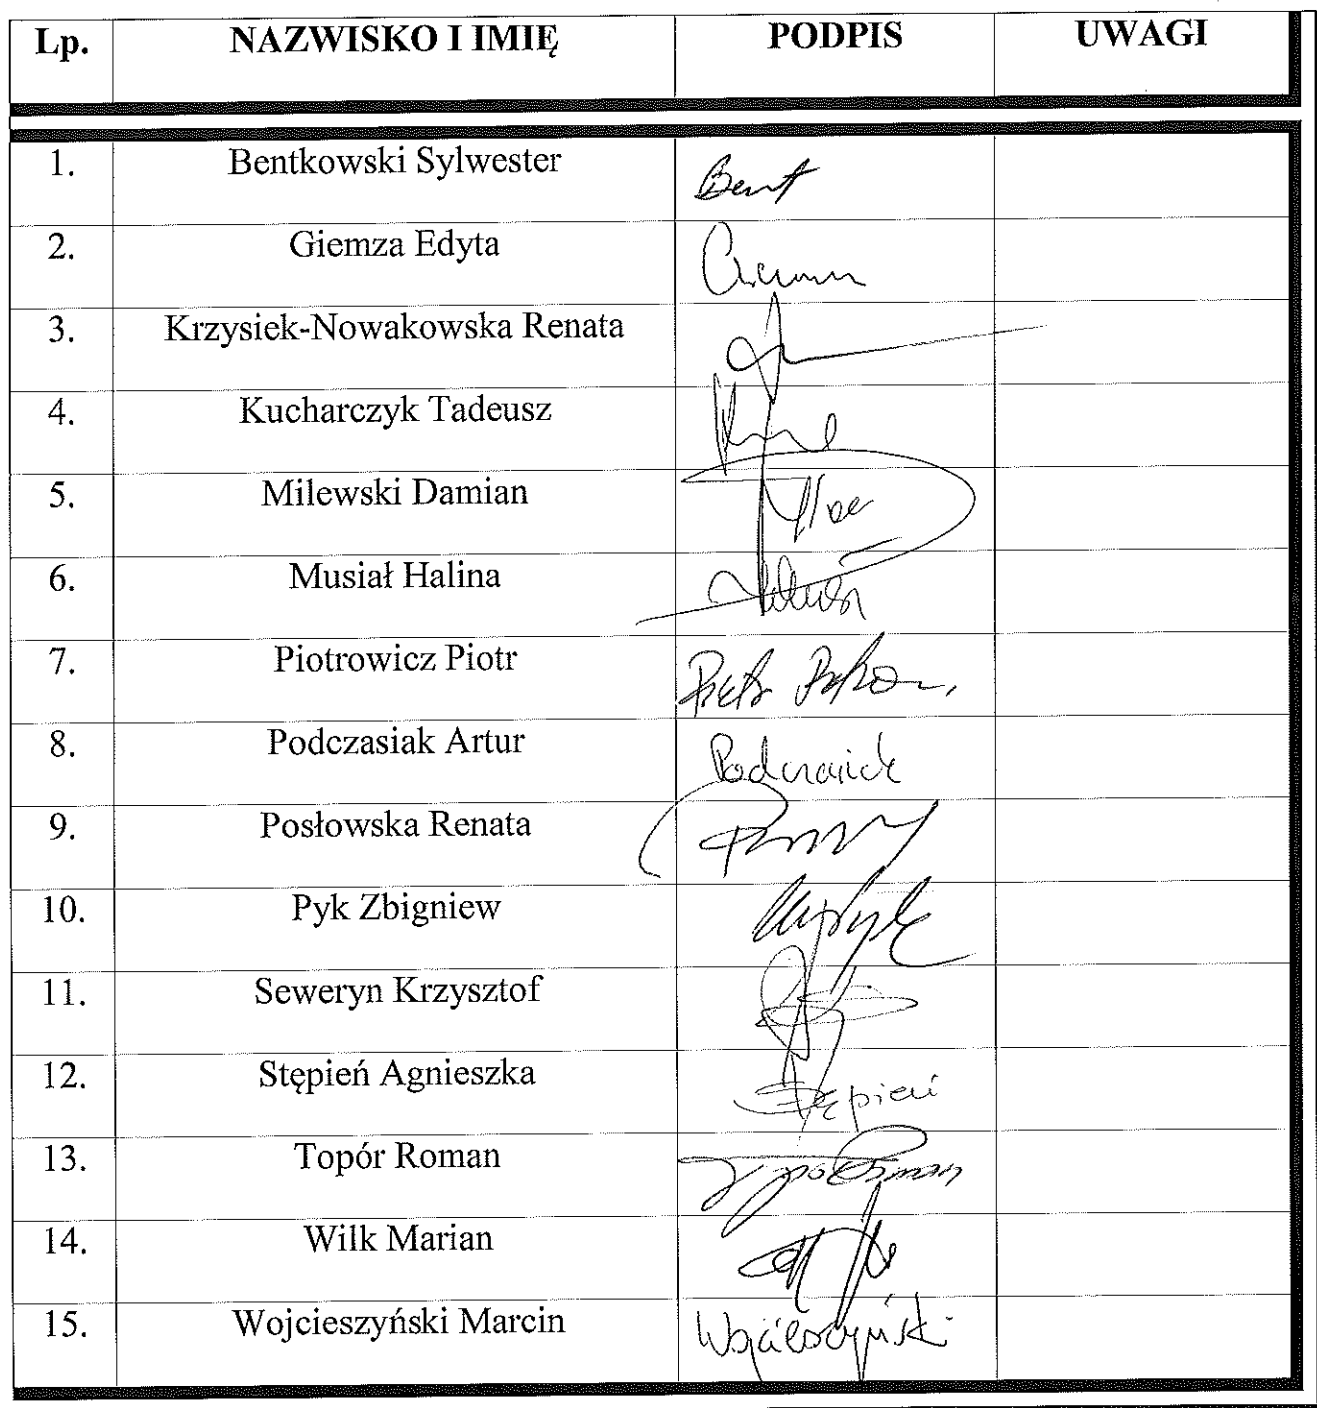 Lp. NAZWISKO I IMIĘ PODPIS UWAGI
1. Bentkowski Sylwester Bent
2. Giemza Edyta
3. Krzysiek-Nowakowska Renata
4. Kucharczyk Tadeusz
5. Milewski Damian
6. Musiał Halina
7. Piotrowicz Piotr
8. Podczasiak Artur Podczasiak
9. Posłowska Renata
10. Pyk Zbigniew
11. Seweryn Krzysztof
12. Stępień Agnieszka Stępień
13. Topór Roman Topór Roman
14. Wilk Marian
15. Wojcieszyński Marcin Wojcieszyński